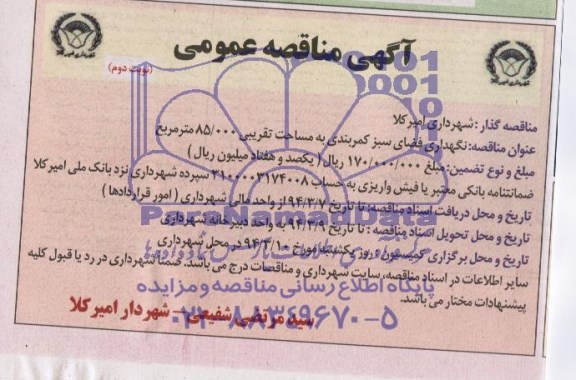 آگهی مناقصه عمومی
(نوبت دوم)
مناقصه گذار : شهرداری امیرکلا
عنوان مناقصه: نگهداری فضای سبز کمربندی به مساحت تقریبی ۸۵/۰۰۰ مترمربع
مبلغ و نوع تضمین: مبلغ ۱۷۰/۰۰۰/۰۰۰ ریال ( یکصد و هفتاد میلیون ریال )
ضمانتنامه بانکی معتبر یا فیش واریزی به حساب ۳۱۰۰۰۰۳۱۷۴۰۰۸ سپرده شهرداری نزد بانک ملی امیرکلا
تاریخ و محل دریافت اسناد مناقصه: تا تاریخ ۹۴/۳/۷ از واحد مالی شهرداری ( امور قراردادها )
تاریخ و محل تحویل اسناد مناقصه : تا تاریخ ۹۴/۳/۹ به واحد دبیرخانه شهرداری
تاریخ و محل برگزاری کمیسیون : روز یکشنبه مورخ ۹۴/۳/۱۰ در محل شهرداری
سایر اطلاعات در اسناد مناقصه، سایت شهرداری و مناقصات درج می باشد. ضمنا شهرداری در رد یا قبول کلیه
پیشنهادات مختار می باشد.
سید مرتضی شفیعی - شهردار امیرکلا
ParsNamadData
پایگاه اطلاع رسانی مناقصه و مزایده
۰۲۱-۸۸۳۴۹۶۷۰-۵